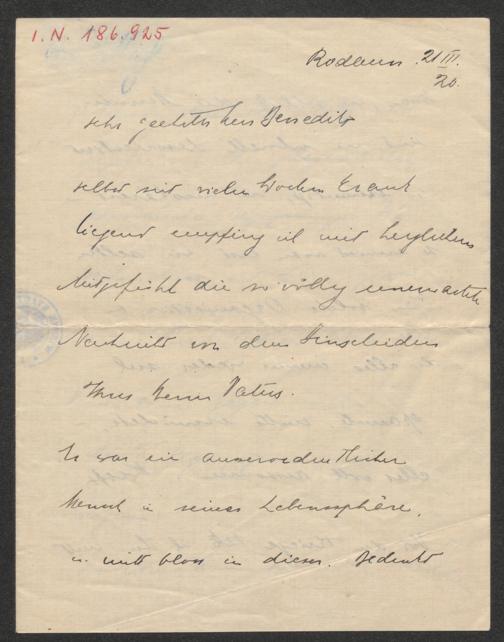 I.N. 186.925
Rodaun. 21 III.
20.
sehr geehrter Herr Benedikt
selbst seit vielen Wochen krank
liegend empfing ich mit herzlichem
Mitgefühl die so völlig unerwartete
Nachricht von dem Hinscheiden
Ihres Herrn Vaters.
Er war ein ausserordentlicher
Mensch in seiner Lebenssphäre,
u. nicht bloss in dieser. Bedenkt